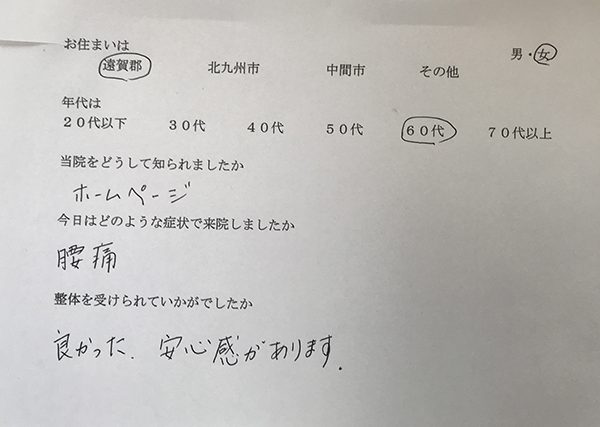 お住まいは
男・女
遠賀郡 北九州市 中間市 その他
年代は
２０代以下 ３０代 ４０代 ５０代 ６０代 ７０代以上
当院をどうして知られましたか
ホームページ
今日はどのような症状で来院しましたか
腰痛
整体を受けられていかがでしたか
良かった．安心感があります．